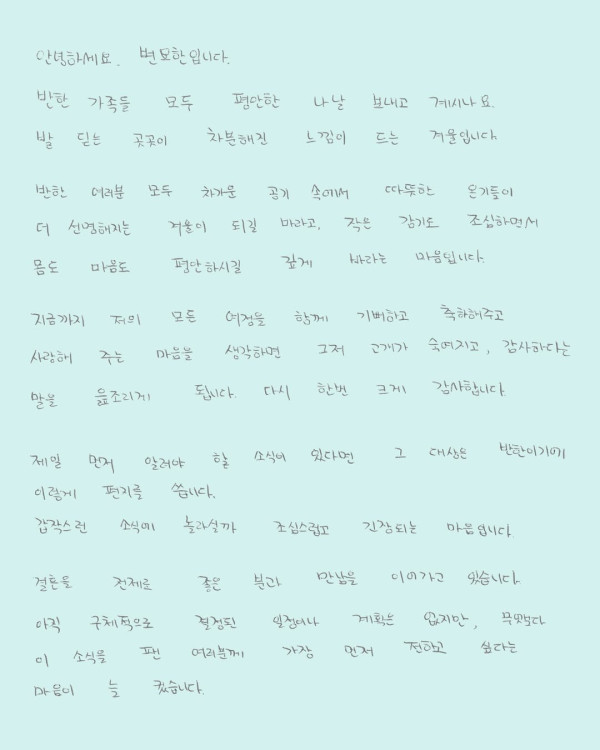 안녕하세요. 변요한입니다.
반한 가족들 모두 평안한 나날 보내고 계시나요.
발 딛는 곳곳이 차분해진 느낌이 드는 겨울입니다
반한 여러분 모두 차가운 공기 속에서 따뜻한 온기들이
더 선명해지는 겨울이 되길 바라고, 작은 감기도 조심하면서
몸도 마음도 평안하시길 깊게 바라는 마음입니다.
지금까지 저의 모든 여정을 함께 기뻐하고 축하해주고
사랑해 주는 마음을 생각하면 그저 고개가 숙여지고, 감사하다는
말을 읊조리게 됩니다. 다시 한번 크게 감사합니다.
제일 먼저 알려야 할 소식이 있다면 그 대상은 반한이기에
이렇게 편지를 씁니다.
갑작스런 소식에 놀라실까 조심스럽고 긴장되는 마음입니다.
결혼을 전제로 좋은 분과 만남을 이어가고 있습니다
아직 구체적으로 결정된 일정이나 계획은 없지만, 무엇보다
이 소식을 팬 여러분께 가장 먼저 전하고 싶다는
마음이 늘 컸습니다.